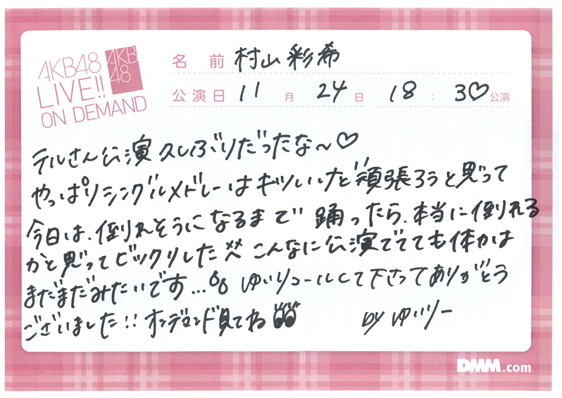 AKB48
LIVE!!
ON DEMAND
AKB
48
名 前 村山彩希
公演日 11 月 24 日 18 : 30 公演
テルさん公演 久しぶりだったな~♡
やっぱりシングルメドレーはキツいけど頑張ろうと思って
今日は、倒れそうになるまで 踊ったら、本当に倒れる
かと思ってビックリした こんなに公演でてても体力は
まだまだみたいです... ゆいりコールして下さってありがとう
ございました!! オンデマンド見てね
by ゆいりー
DMM.com